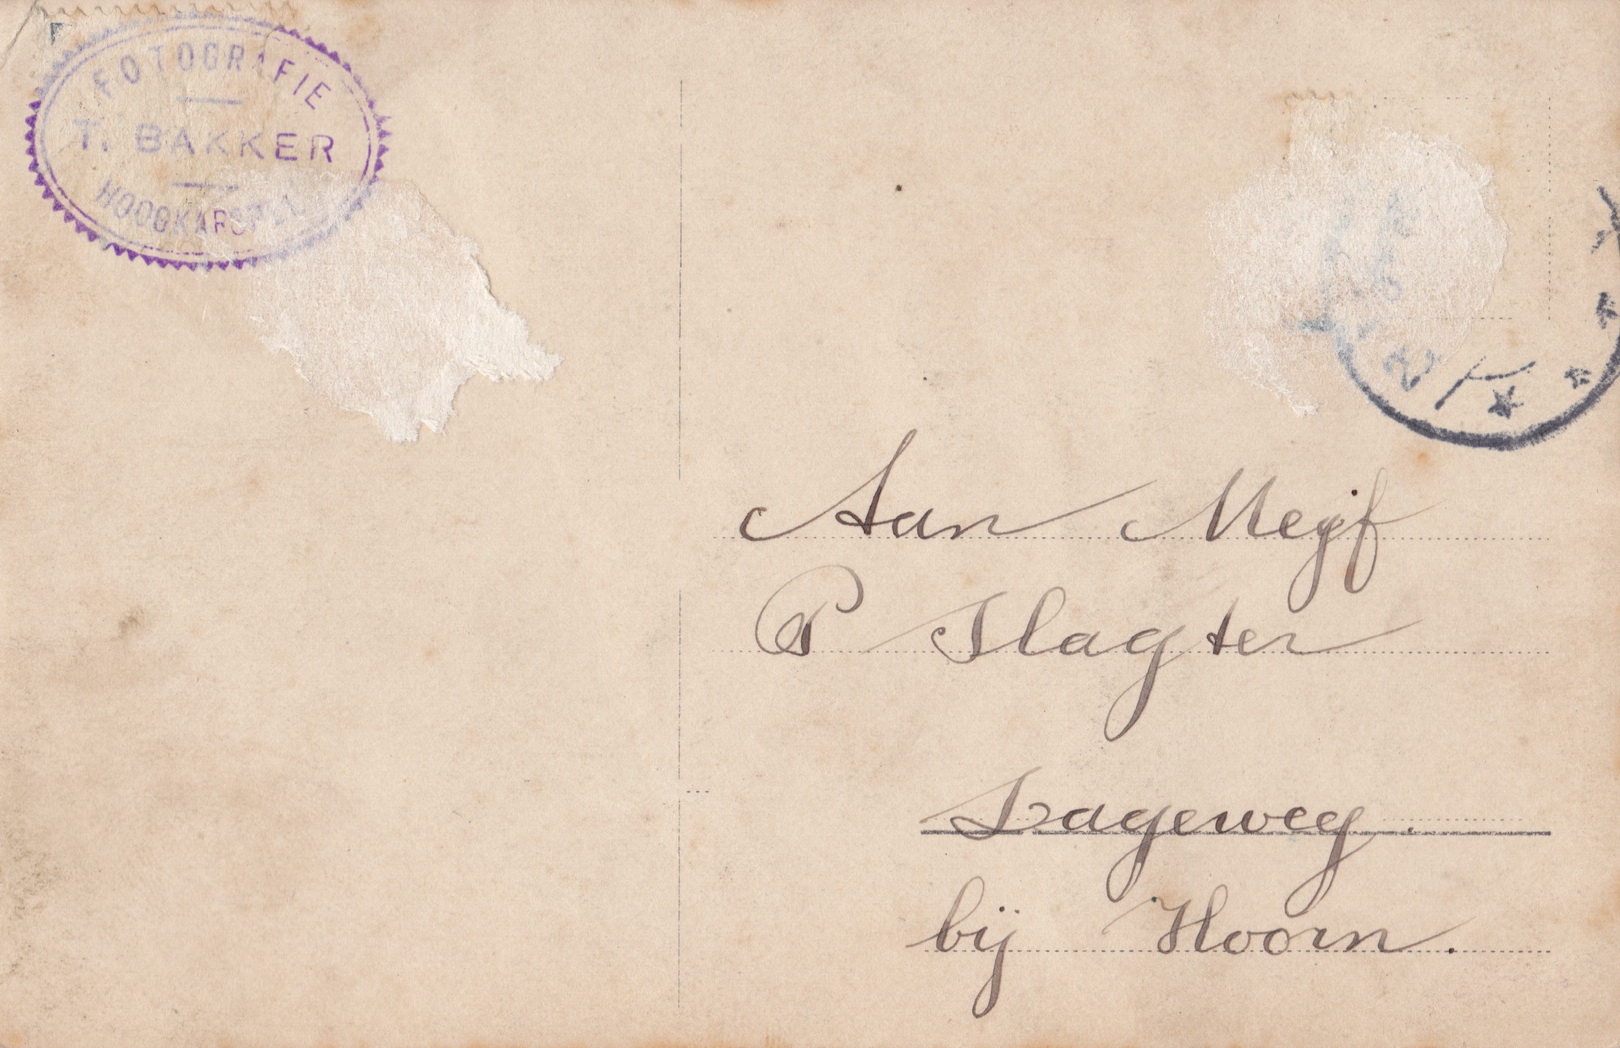 FOTOGRAFIE
T. BAKKER
HOOGKARSPEL
Aan Mejf
P Slagter
Lageweg.
bij Hoorn.